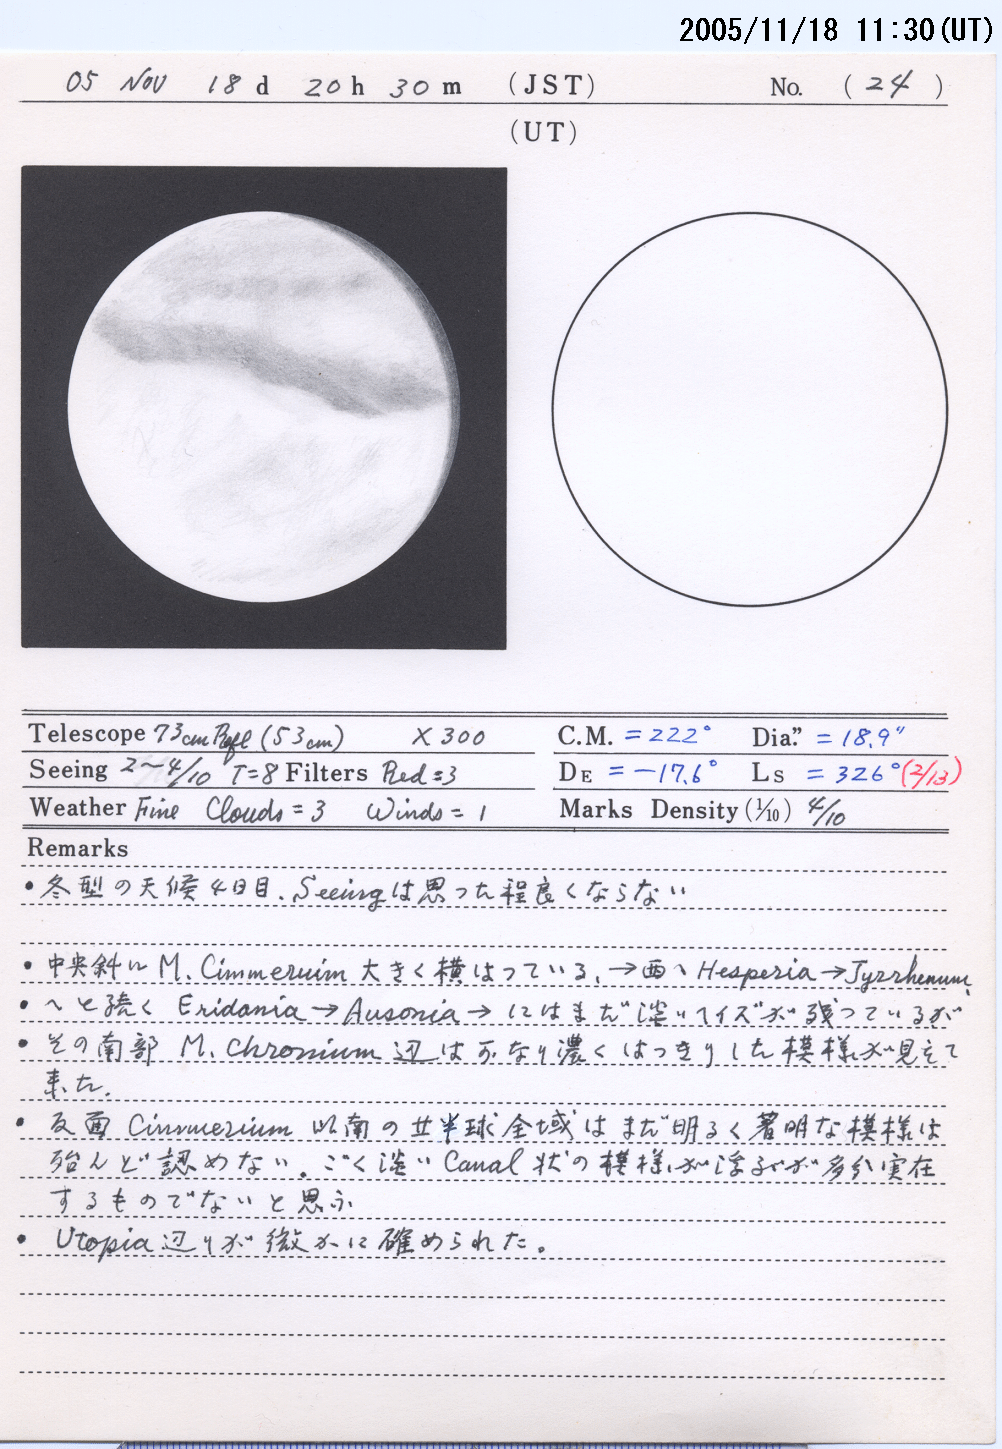 2005/11/18 11:30(UT)
05 NOV 18 d 20 h 30 m (JST) No. (24)
(UT)
Telescope 73cm Refl (53cm) X 300
C.M. = 222° Dia." = 18.9"
Seeing 2~4/10 T=8 Filters Red=3
DE = -17.6° Ls = 326° (2/13)
Weather Fine Clouds = 3 Winds = 1
Marks Density (1/10) 4/10
Remarks
• 冬型の天候4日目. Seeingは思った程良くならない
• 中央斜に M. Cimmerium 大きく横はっている. →西へ Hesperia → Tyrrhenum,
• へと続く Eridania → Ausonia → にはまだ淡いヘイズが残っているが
• その南部 M. Chronium 辺はかなり濃くはっきりした模様が見えて
来た.
• 反面 Cimmerium 以南の 半球全域はまだ明るく著明な模様は
殆んど認めない. ごく淡い Canal 状の模様が浮ぶが多分実在
するものでないと思ふ
• Utopia 辺りが微かに確められた。